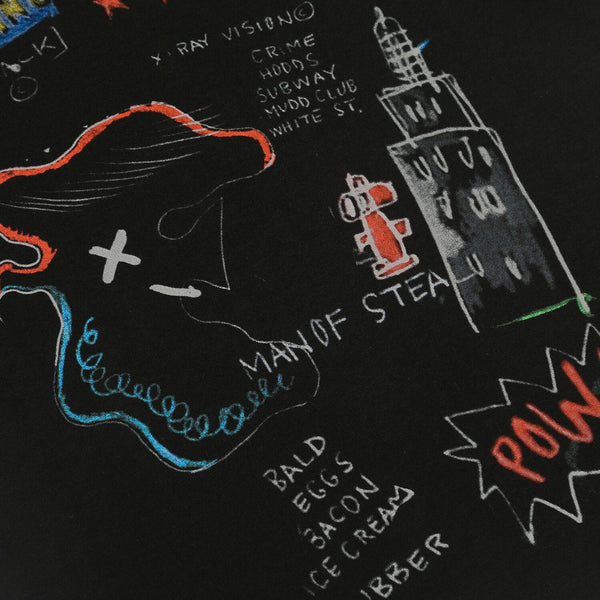 X-RAY VISION©
CRIME
HODDS
SUBWAY
MUDD CLUB
WHITE ST.
©
MAN OF STEAL
POW
BALD
EGGS
BACON
ICE CREAM